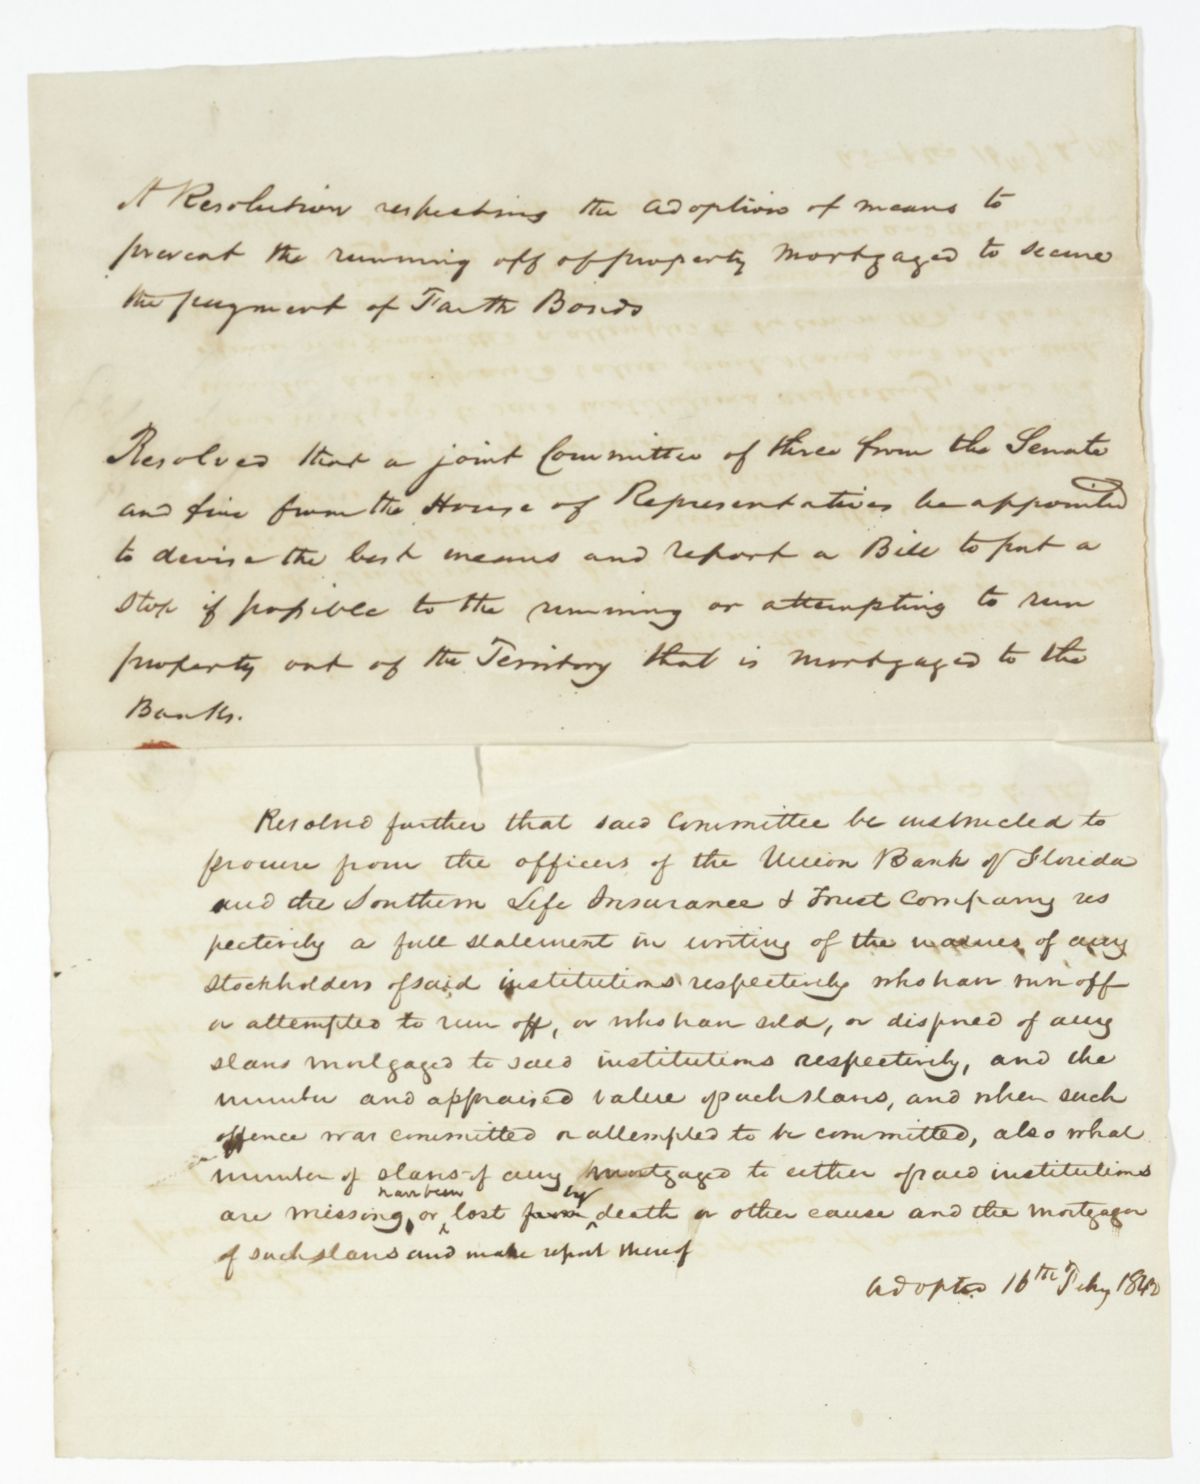 A Resolution respecting the adoption of means to
prevent the running off of property mortgaged to secure
the payment of Faith Bonds
Resolved that a joint Committee of three from the Senate
and five from the House of Representatives be appointed
to devise the best means and report a Bill to put a
stop if possible to the running or attempting to run
property out of the Territory that is mortgaged to the
Banks.
Resolved further that said Committee be instructed to
procure from the officers of the Union Bank of Florida
and the Southern Life Insurance & Trust Company res
pectively a full statement in writing of the names of any
stockholders of said institutions respectively who have run off
or attempted to run off, or who have sold, or disposed of any
slaves mortgaged to said institutions respectively, and the
number and appraised value of such slaves, and when such
offence was committed or attempted to be committed, also what
number of slaves of any mortgaged to either of said institutions
have been by
are missing, or lost from death or other cause and the mortgagor
of such slaves and make report thereof
Adopted 16th Feby 1842